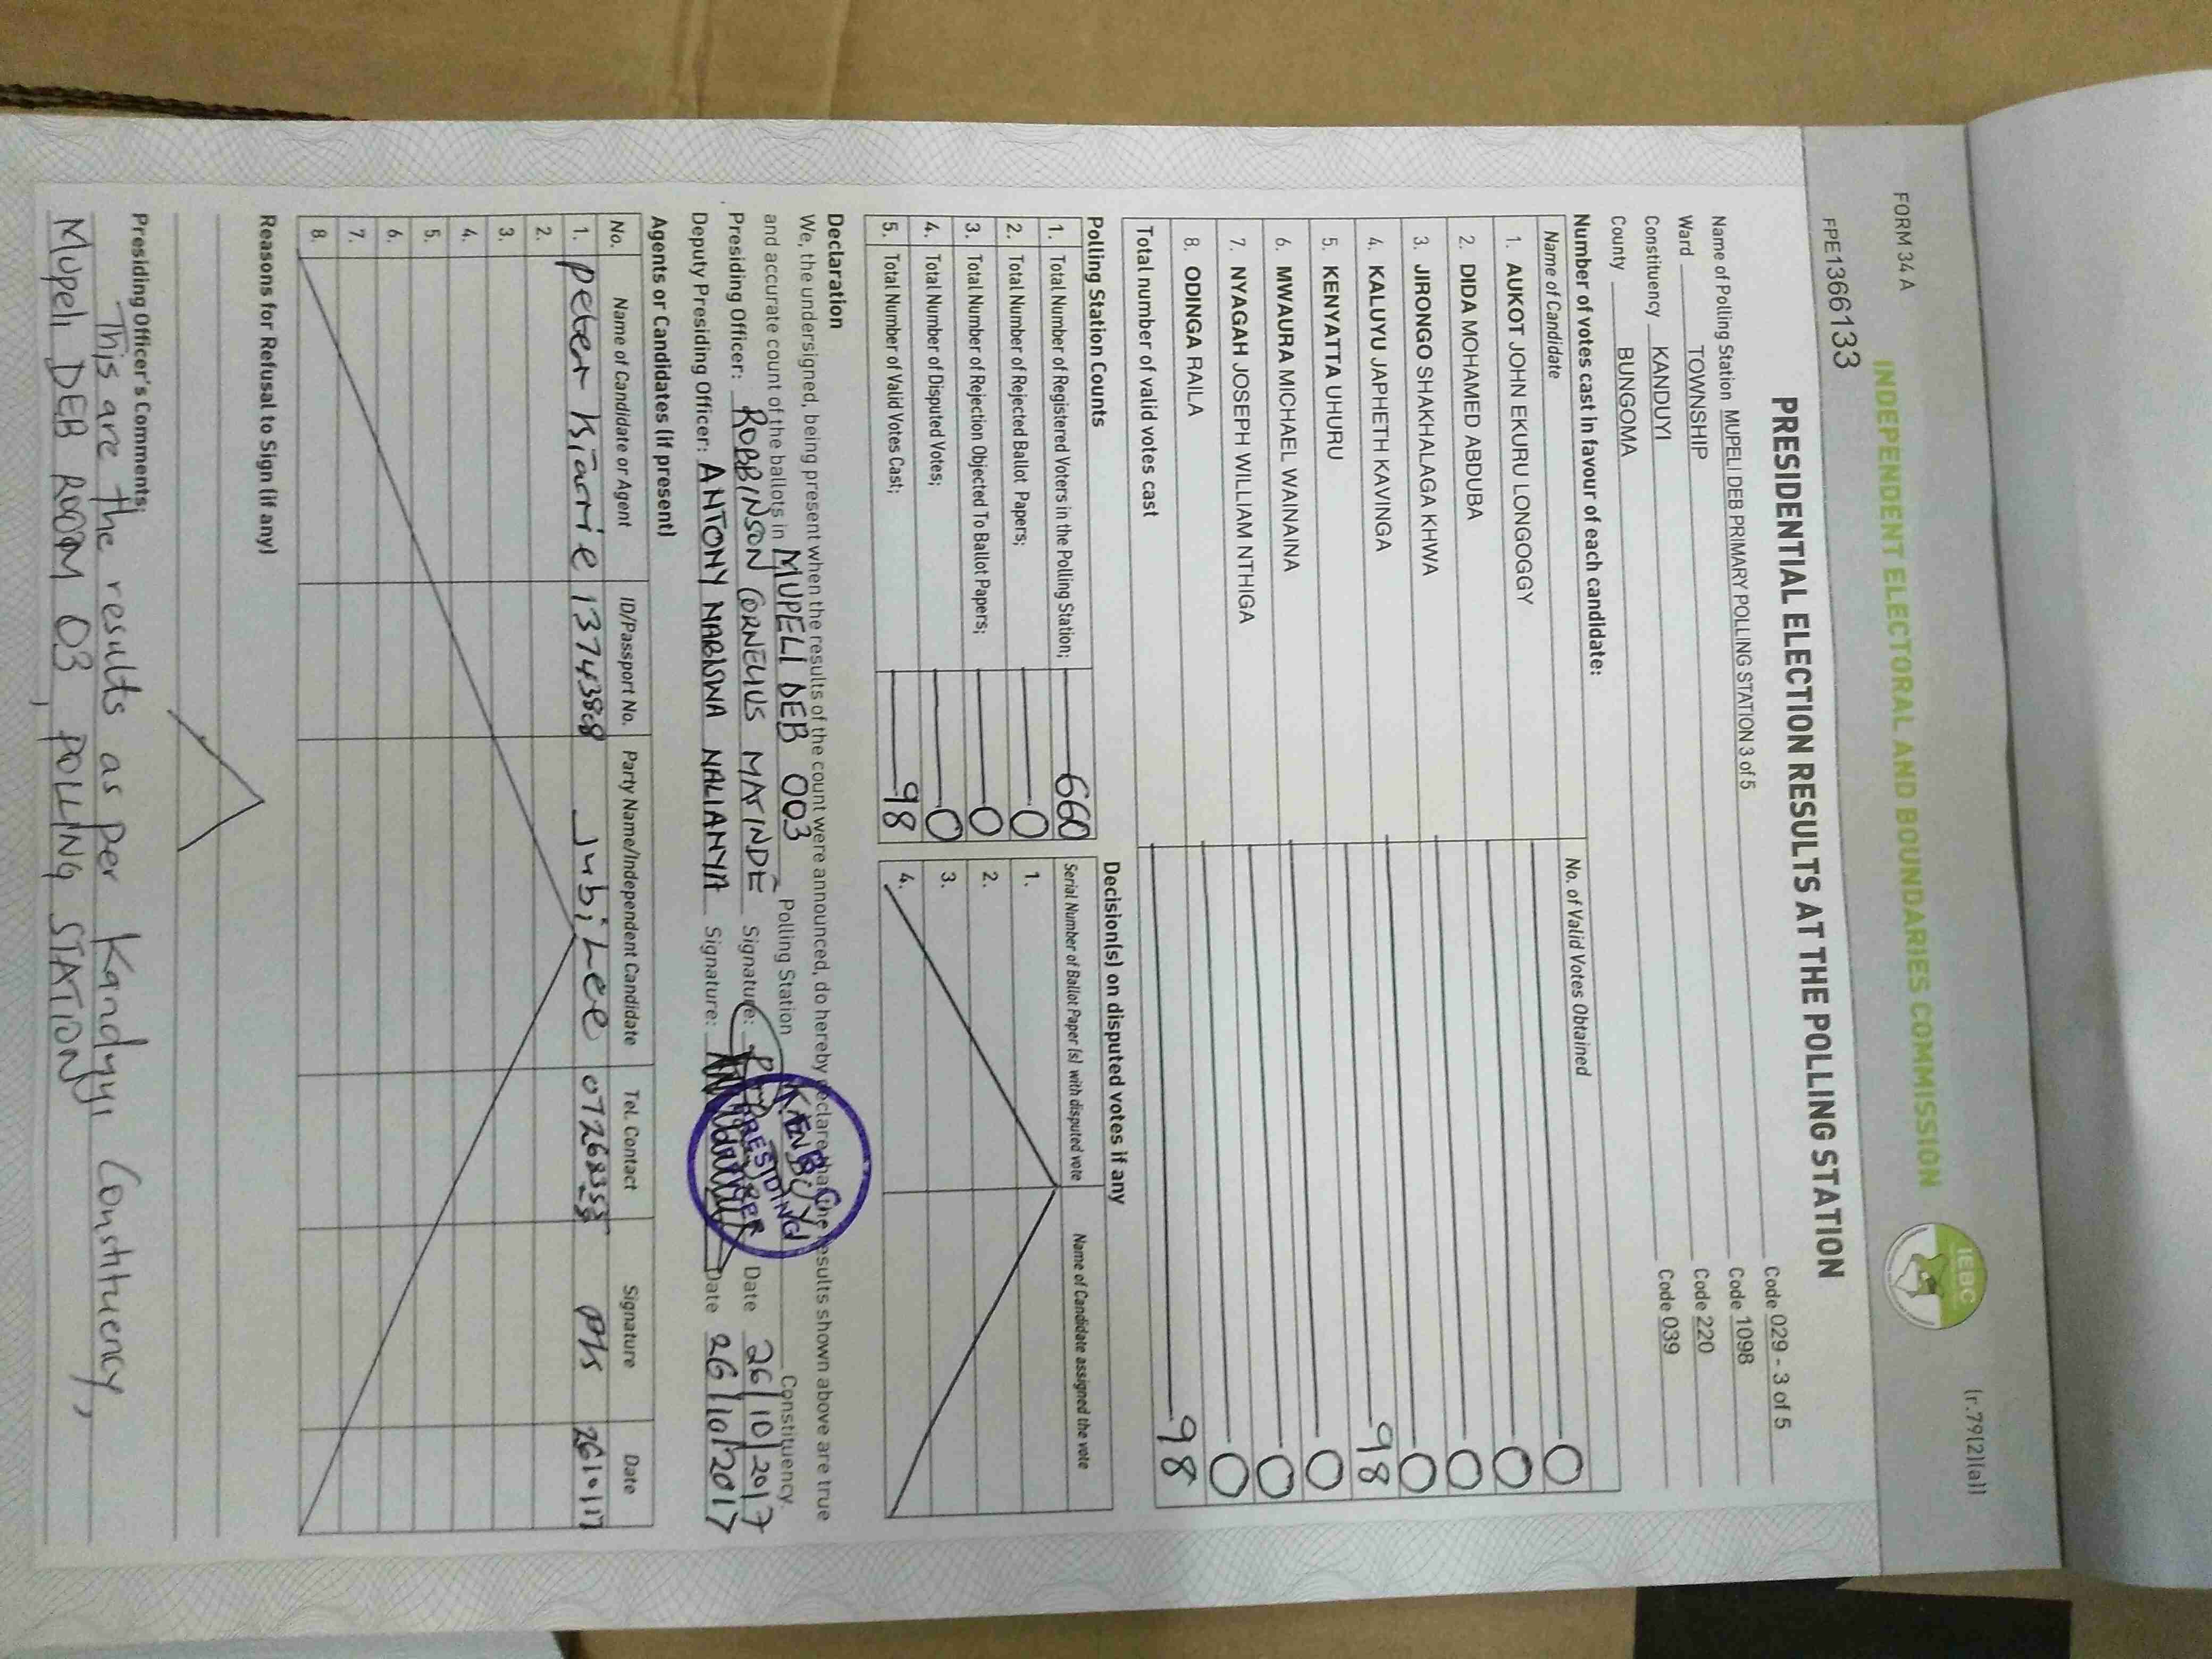 FORM 34 A
(r.79(2)(a))
INDEPENDENT ELECTORAL AND BOUNDARIES COMMISSION
IEBC
FPE1366133
PRESIDENTIAL ELECTION RESULTS AT THE POLLING STATION
Name of Polling Station MUPELI DEB PRIMARY POLLING STATION 3 of 5 Code 029 - 3 of 5
Ward TOWNSHIP Code 1098
Constituency KANDUYI Code 220
County BUNGOMA Code 039
Number of votes cast in favour of each candidate:
Name of Candidate No. of Valid Votes Obtained
1. AUKOT JOHN EKURU LONGOGGY 0
2. DIDA MOHAMED ABDUBA 0
3. JIRONGO SHAKHALAGA KHWA 0
4. KALUYU JAPHETH KAVINGA 0
5. KENYATTA UHURU 98
6. MWAURA MICHAEL WAINAINA 0
7. NYAGAH JOSEPH WILLIAM NTHIGA 0
8. ODINGA RAILA 0
Total number of valid votes cast 98
Polling Station Counts
1. Total Number of Registered Voters in the Polling Station; 660
2. Total Number of Rejected Ballot Papers; 0
3. Total Number of Rejection Objected To Ballot Papers; 0
4. Total Number of Disputed Votes; 0
5. Total Number of Valid Votes Cast; 98
Decision(s) on disputed votes if any
Serial Number of Ballot Paper (s) with disputed vote Name of Candidate assigned the vote
1.
2.
3.
4.
Declaration
We, the undersigned, being present when the results of the count were announced, do hereby declare that the results shown above are true
and accurate count of the ballots in MUPELI DEB 003 Polling Station Constituency.
Presiding Officer: ROBBINSON CORNELIUS MATINDE Signature: Date 26/10/2017
Deputy Presiding Officer: ANTONY NABISWA NALIANYA Signature: Date 26/10/2017
PRESIDING
Agents or Candidates (if present)
No. Name of Candidate or Agent ID/Passport No. Party Name/Independent Candidate Tel. Contact Signature Date
1. Peter Kiarrie 13743808 Jubilee PK 26/10/17
2.
3.
4.
5.
6.
7.
8.
Reasons for Refusal to Sign (if any)
Presiding Officer's Comments;
This are the results as per Kanduyi Constituency,
Mupeli DEB ROOM 03, POLLING STATION